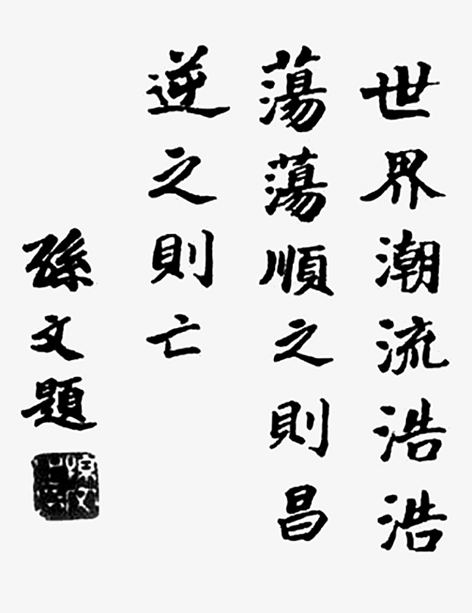 世界潮流浩浩
蕩蕩順之則昌
逆之則亡
孫文題
孫文之印